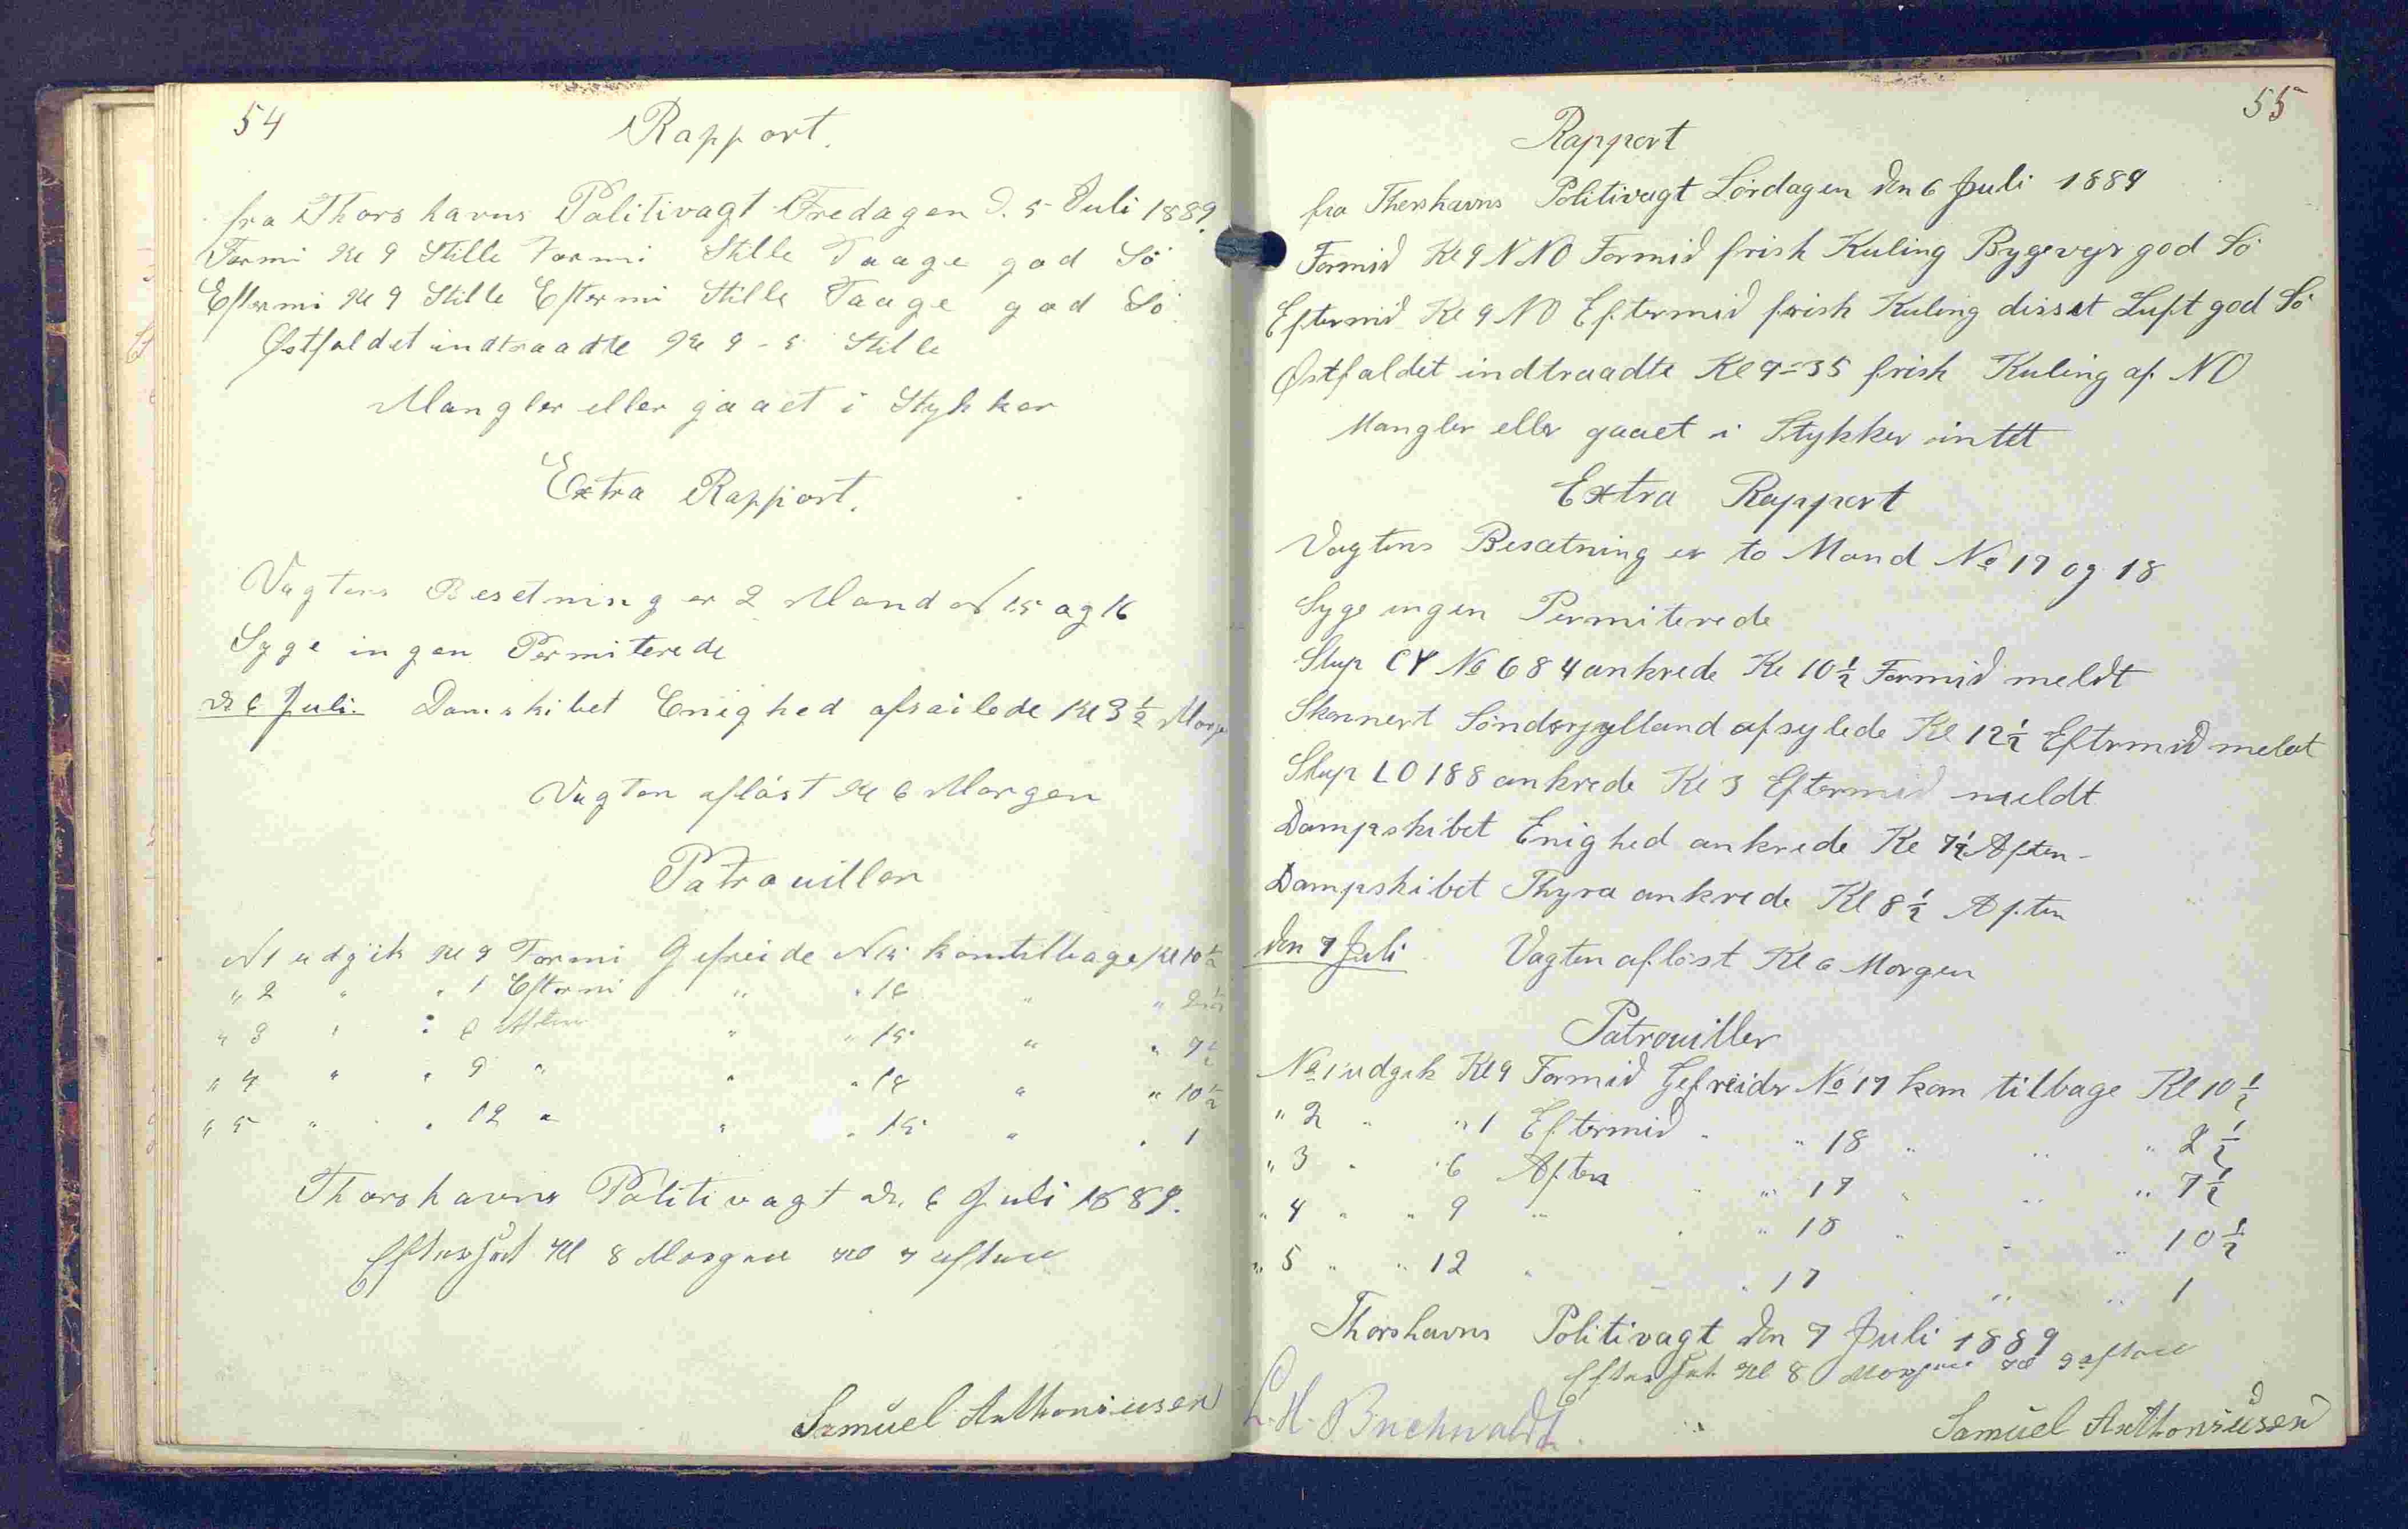 54
Rapport.
fra Thorshavns Politivagt Fredagen d. 5 Juli 1889.
Formi Kl 9 Stille Formi Stille Taage god Sö
Eftermi Kl 9 Stille Eftermi Stille Taage god Sö
Østfaldet indtraadte Kl 9-5 Stille
Mangler eller gaaet i Stykker
Extra Rapport.
Vagtens Besetning er 2 Mand N 15 og 16
Syge ingen Permiterede
D. 6 Juli. Damskibet Enighed afsailede Kl 3 1/2 Morg
Vagten aflöst Kl 6 Morgen
Patrouiller
N 1 udgik Kl 9 Formi Gefreide N 15 kom tilbage Kl 10 1/2
" 2 " " 1 Eftermi " " 16 " " 2 1/2
" 3 " " 6 Aften " " 15 " " 7 1/2
" 4 " " 9 " " " 16 " " 10 1/2
" 5 " " 12 " " " 15 " " 1
Thorshavns Politivagt d. 6 Juli 1889.
Efterset Kl 8 Morgen Kl 7 aften
Samuel Anthoniusen
55
Rapport
fra Thorshavns Politivagt Lördagen den 6 Juli 1889
Formid Kl 9 NNO Formid frisk Kuling Bygevejr god Sö
Eftermid Kl 9 NO Eftermid frisk Kuling disset Luft god Sö
Østfaldet indtraadte Kl 9=35 frisk Kuling af NO
Mangler eller gaaet i Stykker intet
Extra Rapport
Vagtens Besætning er to Mand No 17 og 18
Syge ingen Permiterede
Slup CY No 684 ankrede Kl 10 1/2 Formid meldt
Skonnert Sönderjylland afsylede Kl 12 1/2 Eftermid meldt
Slup LO 188 ankrede Kl 3 Eftermid meldt
Dampskibet Enighed ankrede Kl 7 1/2 Aften -
Dampskibet Thyra ankrede Kl 8 1/2 Aften
den 7 Juli Vagten aflöst Kl 6 Morgen
Patrouiller
No 1 udgik Kl 9 Formid Gefreider No 17 kom tilbage Kl 10 1/2
" 2 " " 1 Eftermid " " 18 " " " 2 1/2
" 3 " " 6 Aften " " 17 " " " 7 1/2
" 4 " " 9 " " " 18 " " " 10 1/2
" 5 " " 12 " " " 17 " " " 1
Thorshavns Politivagt den 7 Juli 1889
Efterset Kl 8 Morgen Kl 9 aften
L. H. Buchwaldt.
Samuel Anthoniusen